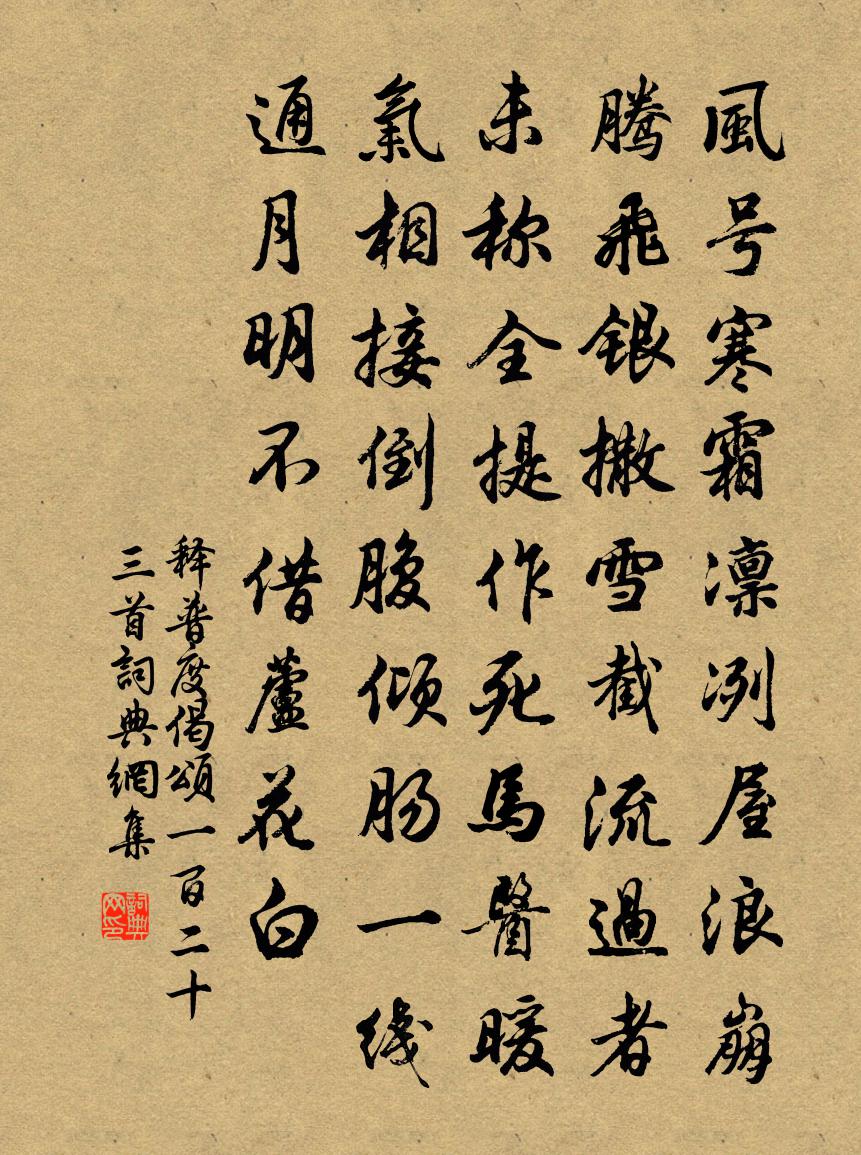 風号寒霜凛冽屋浪崩
腾飛银撒雪截流過者
未称全提作死馬醫暖
氣相接倒腹倾肠一线
通月明不借蘆花白
释普度偈頌一百二十
三首詞典網集
詞典网印